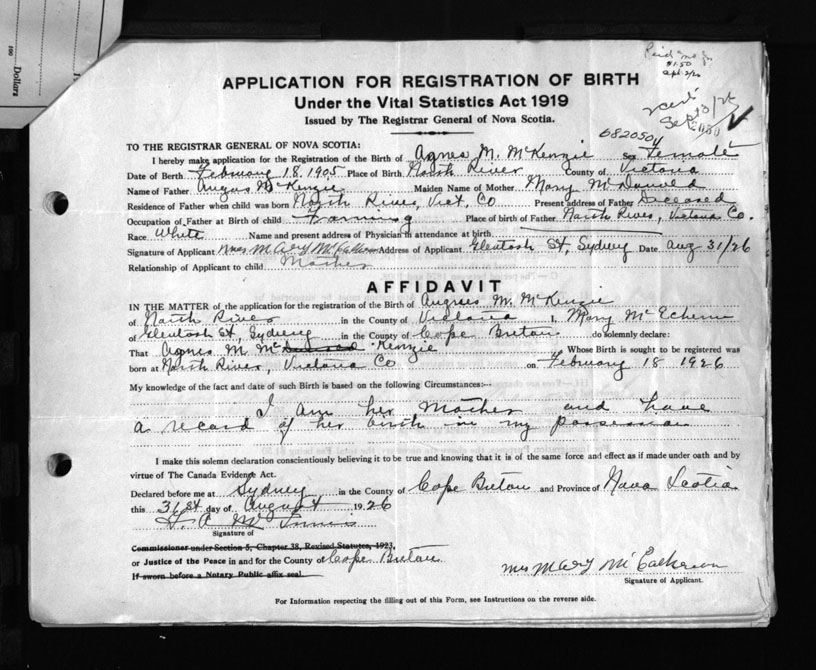 Dollars
100
Paid
$1.50
Sept 2/26
APPLICATION FOR REGISTRATION OF BIRTH
Under the Vital Statistics Act 1919
Issued by The Registrar General of Nova Scotia.
6820504
TO THE REGISTRAR GENERAL OF NOVA SCOTIA:
I hereby make application for the Registration of the Birth of Agnes M. McKenzie Sex Female
Date of Birth February 18. 1905 Place of Birth North River County of Victoria
Name of Father Angus McKenzie Maiden Name of Mother Mary McDonald
Residence of Father when child was born North River, Vict. Co Present address of Father Deceased
Occupation of Father at Birth of child Farming Place of birth of Father North River, Victoria Co.
Race White Name and present address of Physician in attendance at birth
Signature of Applicant Mrs Mary Address of Applicant Glentosh St, Sydney Date Aug 31/26
Relationship of Applicant to child Mother
AFFIDAVIT
IN THE MATTER of the application for registration of the Birth of Angnes M. McKenzie
of North River in the County of Victoria I, Mary
of Glentosh St, Sydney in the County of Cape Breton do solemnly declare:
That Agnes M. Mc Kenzie Whose Birth is sought to be registered was
born at North River, Victoria Co on February 18 1926
My knowledge of the fact and date of such Birth is based on the following Circumstances:--
I am her Mother and have
a record of her birth in my possession
I make this solemn declaration conscientiously believing it to be true and knowing that it is of the same force and effect as if made under oath and by
virtue of The Canada Evidence Act.
Declared before me at Sydney in the County of Cape Breton and Province of Nova Scotia
this 31st day of August 1926
Signature of
Commissioner under Section 5, Chapter 38, Revised Statutes, 1923,
or Justice of the Peace in and for the County of Cape Breton
If sworn before a Notary Public affix seal.
Mrs Mary
Signature of Applicant.
For Information respecting the filling out of this Form, see Instructions on the reverse side.